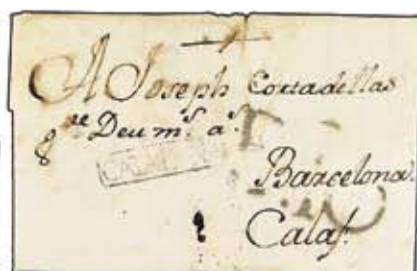 A Joseph Cortadellas
qe Deu ms. as.
Barcelona.
Calaf.